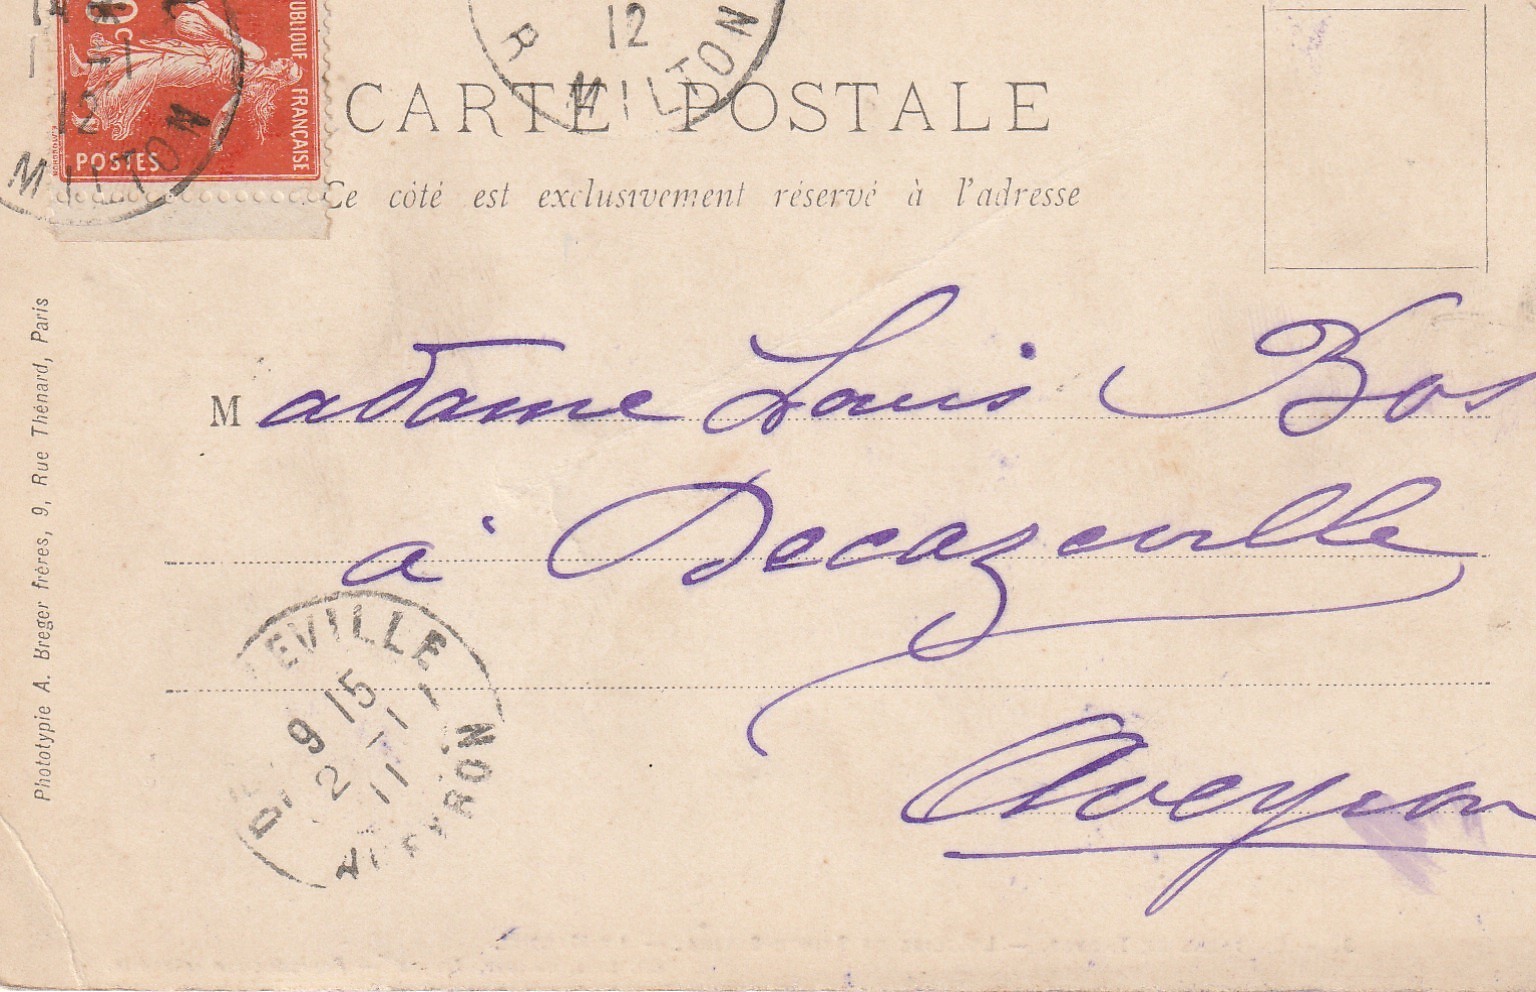 RÉPUBLIQUE FRANÇAISE
10c
POSTES
12
R. MILTON
12
MILTON
CARTE POSTALE
Ce côté est exclusivement réservé à l'adresse
Madame Louis Bos
à Decazeville
Aveyron
EVILLE
9 15
2 - 11
11
AVEYRON
Phototypie A. Breger frères, 9, Rue Thénard, Paris